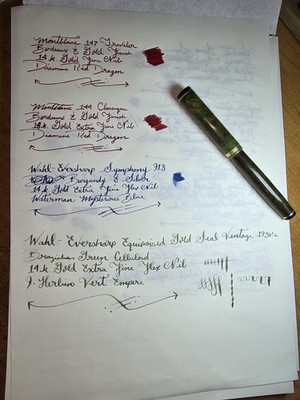 Montblanc 147 Traveler
Bordeaux & Gold Finish
14.k Gold Fine Nib
Diamine Red Dragon
Montblanc 144 Classique
Bordeaux & Gold Finish
14.k Gold Extra Fine Nib
Diamine Red Dragon
Wahl-Eversharp Symphony 913
Burgundy & Silver
14.k Gold Extra Fine Flex Nib
Waterman Mysterious Blue
Wahl-Eversharp Equipoised Gold Seal Vintage 1930's
Brazilian Green Celluloid
14.k Gold Extra Fine Flex Nib
J. Herbin Vert Empire